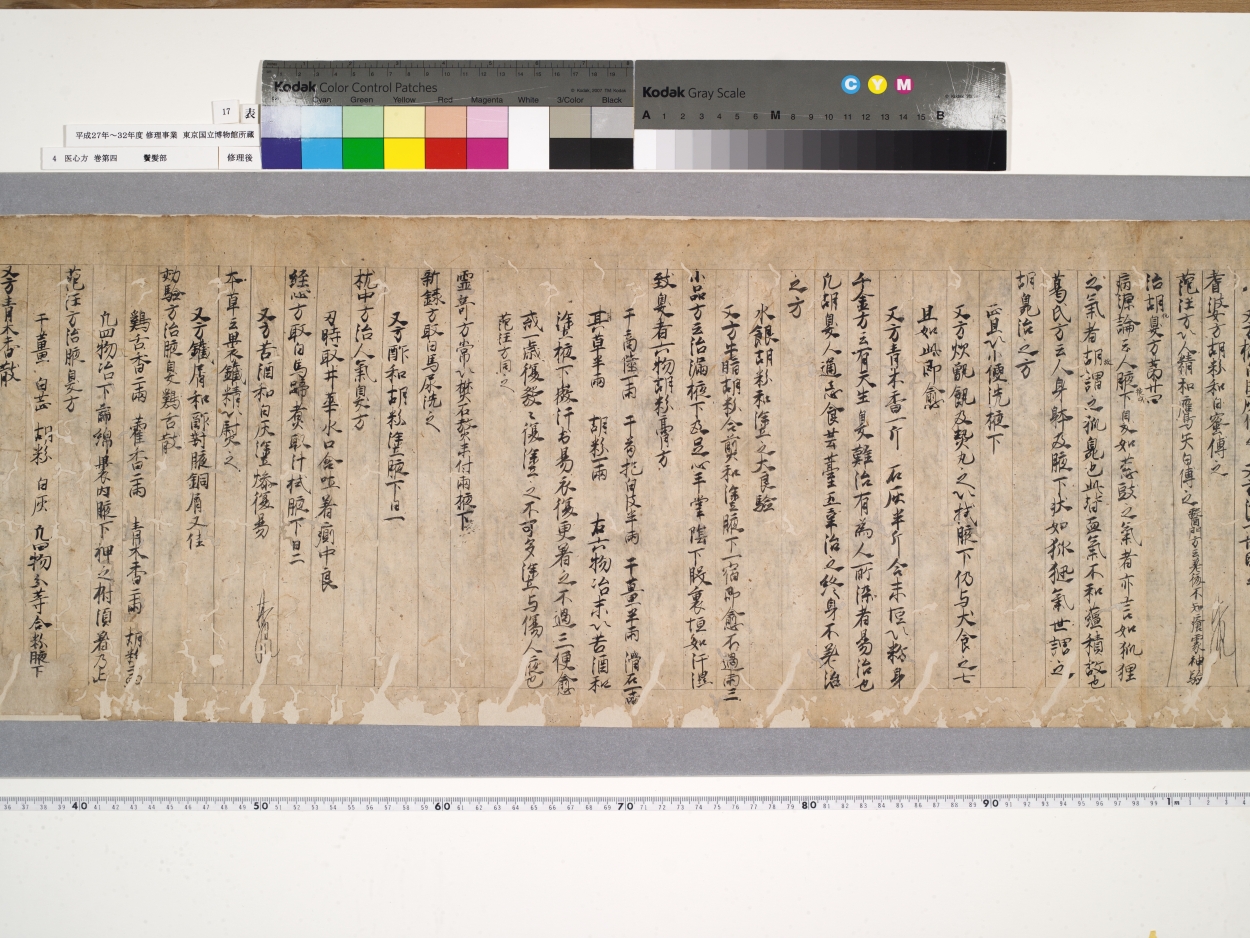 Kodak Color Control Patches
Cyan Green Yellow Red Magenta White 3/Color Black
Kodak Gray Scale
C Y M
A 1 2 3 4 5 6 M 8 9 10 11 12 13 14 15 B
17 表
平成27年～32年度 修理事業 東京国立博物館所蔵
4 医心方 巻第四 鬢髪部 修理後
耆婆方胡粉和白蜜傅之
范汪方以猪精和鷹矢白傅之
治胡臭方第廿四
病源論云人腋下臭如葱豉之氣者亦言如狐狸
之氣者胡謂之狐臭也此皆血氣不和蘊積故也
葛氏方云人身躰及腋下状如狐狸氣世謂之
胡臭治之方
正旦以小便洗腋下
又方炊甑飯及熱丸之以拭腋下仍与犬食之七
旦如此即愈
又方青木香一斤 石灰半斤合末恒以粉身
千金方云有天生臭難治有為人所染者易治也
凡胡臭人通忌食芸薹五辛治之終身不差治
之方
水銀胡粉和塗之大良驗
又方牛脂胡粉合煎和塗腋下一宿即愈不過両三
小品方云治漏腋下及足心手掌陰下股裏恒如汗湿
致臭者六物胡粉膏方
干商陸一両 干苟杞白皮半両 干薑半両 滑石一両
甘草半両 胡粉一両 右六物冶末以苦酒和
塗掖下微汗出易衣復更着之不過三便愈
或一歳復發々復塗之不可多塗与傷人腋也
范汪方同之
靈奇方常以礬石焚末付両掖下
新録方取白馬尿洗之
又方酢和胡粉塗腋下日一
枕中方治人氣臭方
丑時取井華水口含吐着廁中良
経心方取白馬蹄煮取汁拭腋下日二
又方苦酒和白灰塗燥復易
本草云裹鐵精以熨之
又方鑵屑和酢封腋銅屑又佳
効驗方治腋臭鷄舌散
鷄舌香二両 藿香二両 青木香二両 胡粉一両
凡四物冶下篩綿裹内腋下神之樹須着乃止
范汪方治腋臭方
干薑 白芷 胡粉 白灰 凡四物分等合粉腋下
又方青木香散
40 50 60 70 80 90 1m